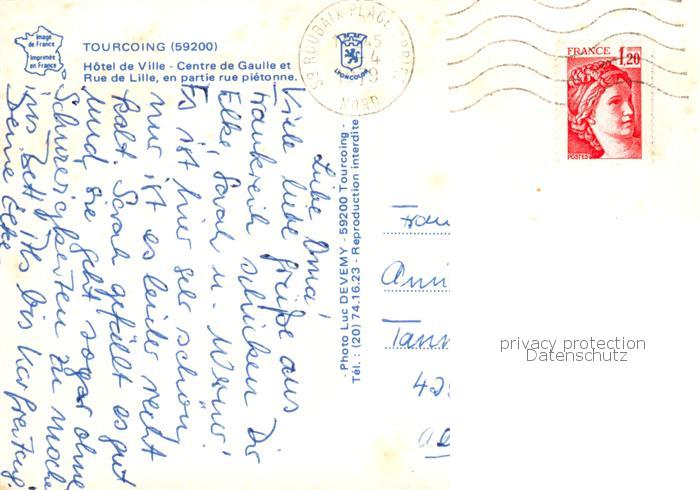 Image
de France
Imprimée
en France
TOURCOING (59200)
Hôtel de Ville - Centre de Gaulle et
Rue de Lille, en partie rue piétonne.
59 ROUBAIX PLACE
NORD
LYONCOLOR
FRANCE 1,20
POSTES
- Photo Luc DEVEMY - 59200 Tourcoing -
Tél. : (20) 74.16.23 - Reproduction interdite
Liebe Oma!
Viele liebe Grüße aus
Frankreich schicken Dir
Elke, Sarah u. Werner!
Es ist hier sehr schön,
nur ist es leider recht
kalt. Sarah gefällt es gut
und sie geht sogar ohne
Schwierigkeiten zu machen
ins Bett. Bis Karfreitag.
Deine Elke
Frau
Anni
Tann
privacy protection
Datenschutz